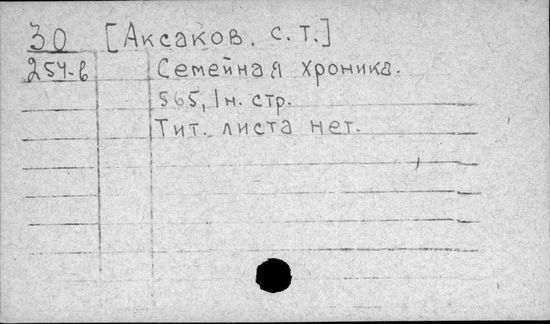 30 [Аксаков. С. Т.]
254-в Семейная хроника.
565, 1н. стр.
Тит. листа нет.